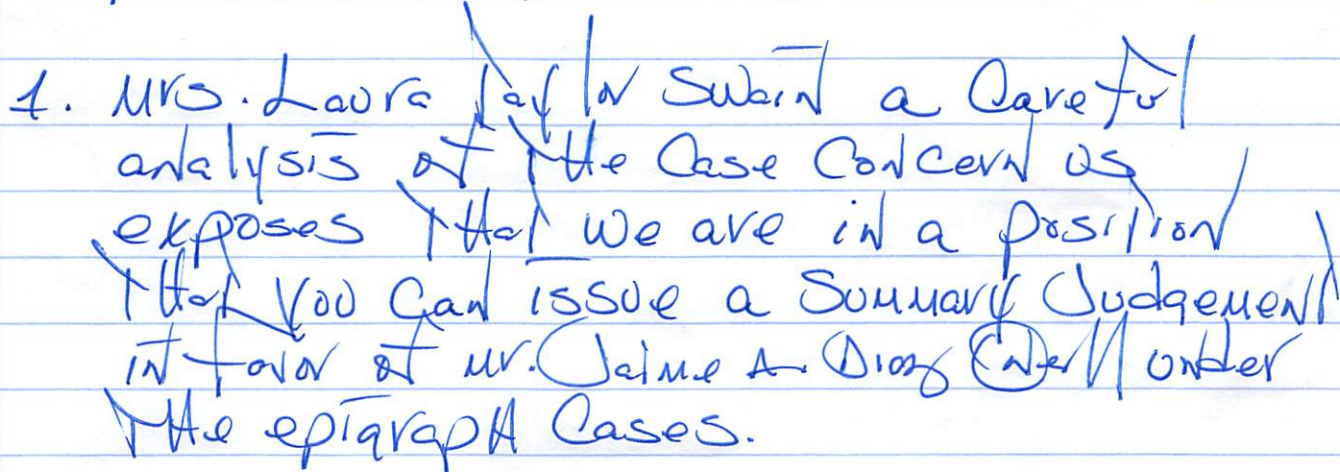 1. Mrs. Laura Taylor Swain a Careful
analysis of the Case Concern us
exposes that we are in a position
that You Can issue a Summary Judgement
in favor of Mr. Jaime A. Diaz O'Neill under
the epigraph Cases.